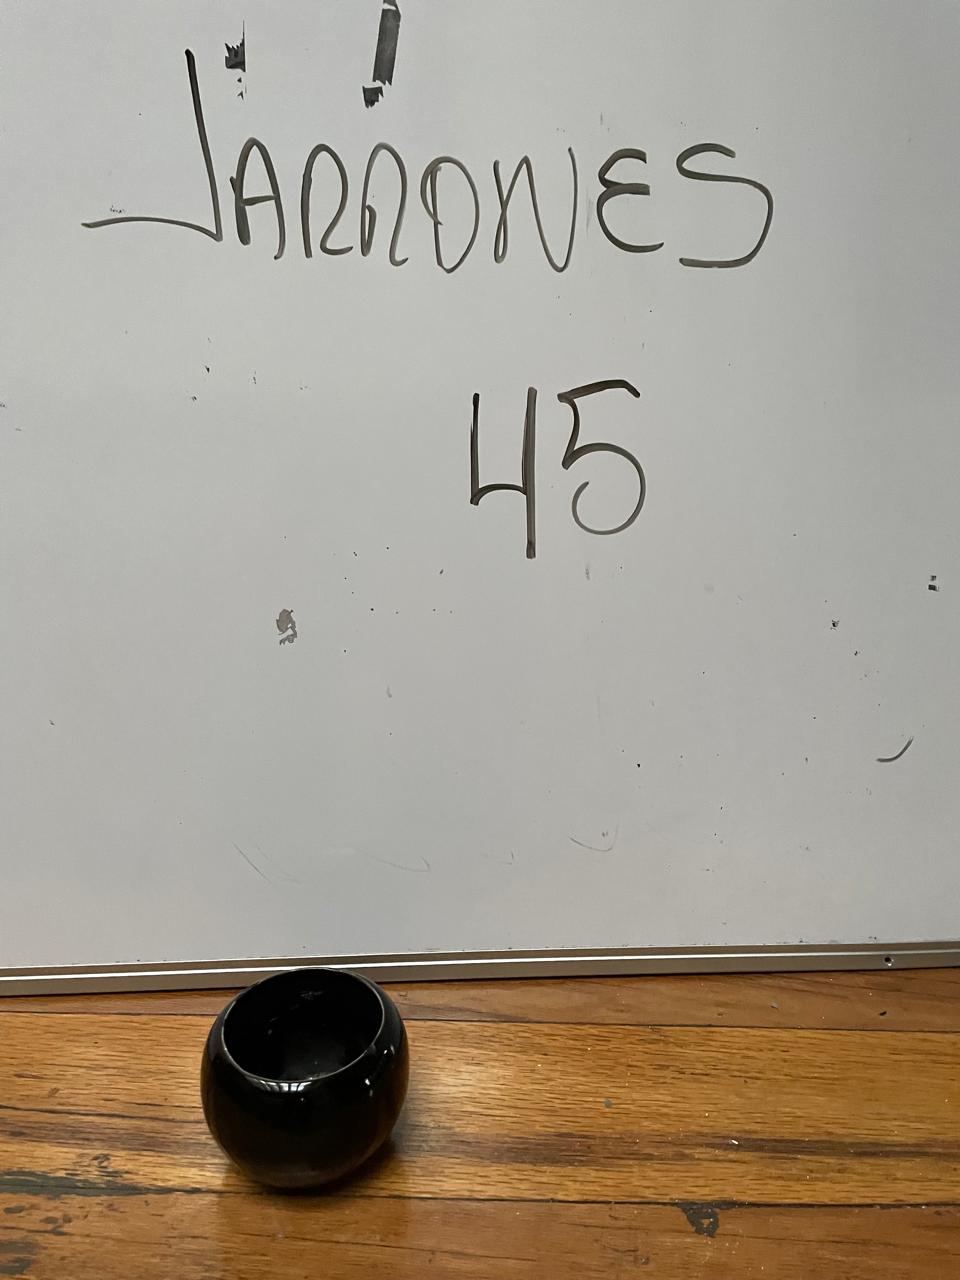 JARRONES
45